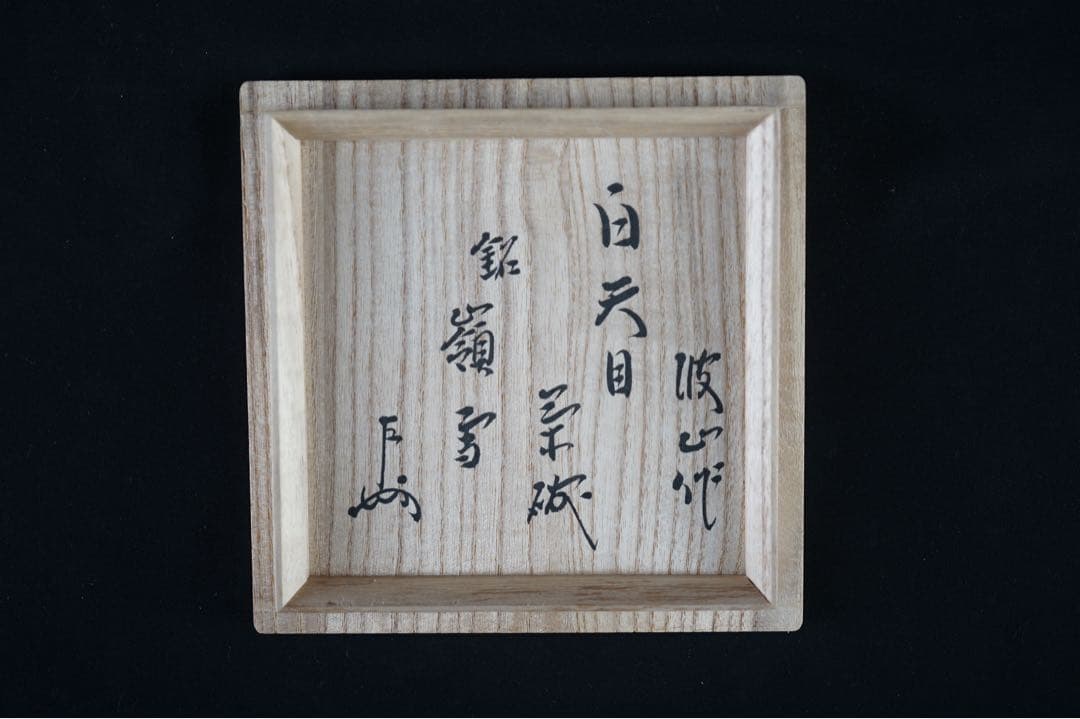 波山作
白天目
茶碗
銘 嶺雪